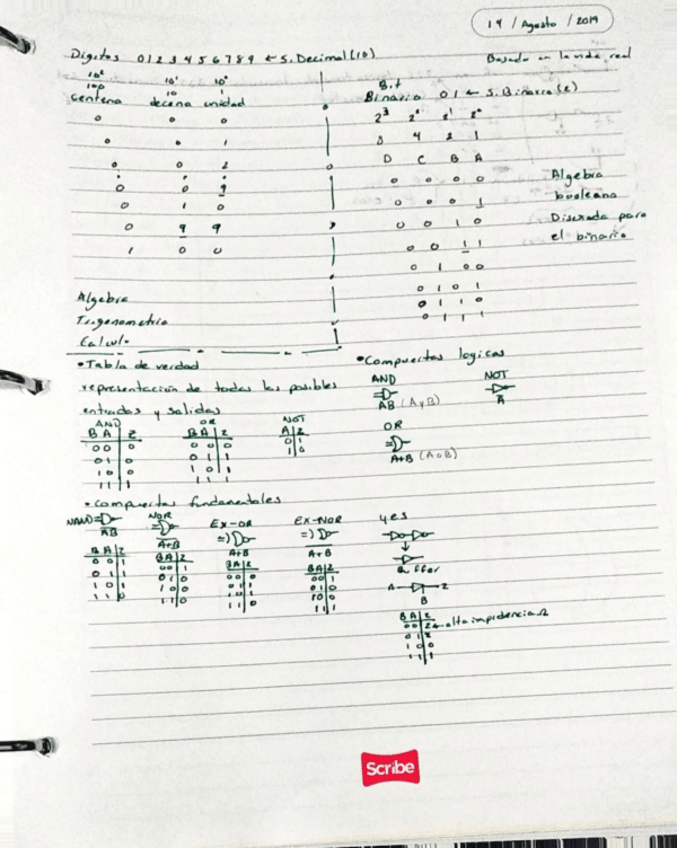 14 / Agosto / 2019
Digitos 0 1 2 3 4 5 6 7 8 9 ← S. Decimal (10)
Basado en la vida real
10² 10¹ 10⁰
100 10 1
centena decena unidad
0 0 0
0 0 1
0 0 2
0 0 9
0 1 0
0 9 9
1 0 0
Algebra
Trigonometria
Calculo
Bit
Binario 0 1 ← S. Binario (2)
2³ 2² 2¹ 2⁰
8 4 2 1
D C B A
0 0 0 0
0 0 0 1
0 0 1 0
0 0 1 1
0 1 0 0
0 1 0 1
0 1 1 0
0 1 1 1
Algebra
booleana
Diseñada para
el binario
• Tabla de verdad
representación de todas las posibles
entradas y salidas
AND OR NOT
B A Z B A Z A Z
0 0 0 0 0 0 0 1
0 1 0 0 1 1 1 0
1 0 0 1 0 1
1 1 1 1 1 1
• Compuertas logicas
AND NOT
AB (A y B) A̅
OR
A+B (A o B)
• Compuertas fundamentales
NAND NOR Ex-OR Ex-NOR yes
AB A+B A+B A+B
B A Z B A Z B A Z B A Z
0 0 1 0 0 1 0 0 0 0 0 1
0 1 1 0 1 0 0 1 1 0 1 0
1 0 1 1 0 0 1 0 1 1 0 0
1 1 0 1 1 0 1 1 0 1 1 1
Buffer
A Z
B
B A Z
0 0 Z ← alta impedancia
0 1 Z
1 0 0
1 1 1
Scribe